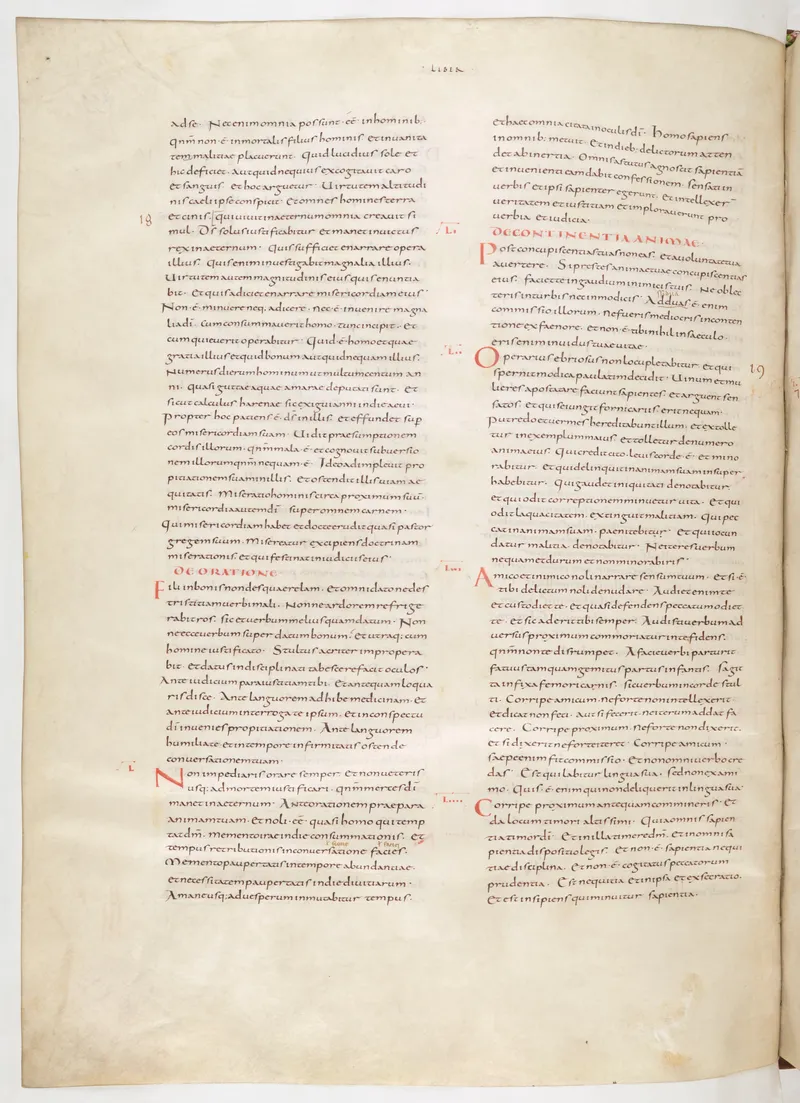 · LIBER ·
ad se · Nec enim omnia possunt · eē · in hominib;
qnm̄ non · ē · inmortalis filius hominis · et in uanita
tem malitiae placuerunt · Quid lucidius sole · et
hic deficiet · Aut quid nequius excogitauit caro
et sanguis · et hoc arguetur · Uirtutem altitudi
nis caeli ipse conspicit · et omnes homines terra
18
et cinis · qui uiuit in aeternum omnia creauit si
mul · Dſ solus iustificabitur et manet inuictus
rex in aeternum · Quis sufficiet enarrare opera
illius · Quis enim inuestigabit magnalia illius ·
Uirtutem autem magnitudinis eius quis enuntia
bit · et quis adiciet enarrare misericordiam eius ·
Non · ē · minuere neq; adicere · nec · ē · inuenire magna
lia dī · Cum consummauerit homo tunc incipiet · et
cum quieuerit operabitur · Quid · ē · homo et quae ·
gratia illius et quid bonum aut quid nequam illius ·
Numerus dierum hominum ut multum centum an
ni · quasi guttae aquae amarae deputati sunt · et
sicut calculus harenae sic exigui anni in die aeui ·
Propter hoc patiens · ē · dſ in illis · et effundet sup
eos misericordiam suam · Uidit praesumptionem
cordis illorum · qnm̄ mala · ē · et cognouit subuersio
nem illorum qnm̄ nequam · ē · Ideo adimpleuit pro
pitiationem suam in illis · et ostendit illis uiam ae
quitatis · Miseratio hominis circa proximum suū ·
misericordia autem dī · super omnem carnem ·
Qui misericordiam habet et docet erudit quasi pastor
gregem suum · Misereatur excipiens doctrinam
miserationis · et qui festinat in iudiciis eius ·
DE ORATIONE
Fili in bonis non des quaerelam · et omni dato ne des
tristitiam uerbi mali · Nonne ardorem refrige
rabit ros · sic et uerbum melius quam datum · Non
ne ecce uerbum super datum bonum · et utraq; cum
homine iustificato · Stultus acriter impropera
bit · et datus indisciplinati tabescere facit oculos ·
Ante iudicium para iustitiam tibi · et antequam loqua
ris disce · Ante languorem adhibe medicinam · et
ante iudicium interroga te ipsum · et in conspectu
dī inuenies propitiationem · Ante languorem
humilia te · et in tempore infirmitatis ostende
conuersationem tuam ·
L
Non impediaris orare semper · et non ueteris
usq; ad mortem iustificari · qnm̄ merces dī
manet in aeternum · Ante orationem praepara
animam tuam · et noli · eē · quasi homo qui temp
tat dm̄ · Memento irae in die consummationis · et
tempus retributionis in conuersatione faciei ·
Memento paupertatis in tempore abundantiae ·
et necessitatem paupertatis in die diuitiarum ·
A mane usq; ad uesperum inmutabitur tempus ·
et haec omnia citata in oculis dī · Homo sapiens
in omnib; metuit · et in dieb; delictorum atten
det ab inertia · Omnis astutus agnoscit sapientiā
et inuenienti eam dabit confessionem · sensati in
uerbis et ipsi sapienter egerunt · et intellexer̄
ueritatem et iustitiam et implorauerunt pro
uerbia et iudicia ·
Li
DE CONTINENTIA ANIMAE
Post concupiscentias tuas non eas · et a uoluntate tua
auertere · Si prestes animae tuae concupiscentias
eius · faciet te in gaudium inimicis tuis · Ne oblec
teris in turbis nec inmodicis · Adduas · ē · enim
commissio illorum · ne fueris mediocris in conten
tione ex faenore · et non · ē · tibi nihil in saeculo
eris enim inuidus uitae tuae ·
Lii
19
Operarius ebriosus non locupletabitur · et qui
spernit modica paulatim decidit · Uinum et mu
lieres apostatare faciunt sapientes · et arguent sen
satos · et qui se iungit fornicariis erit nequam ·
putredo et uermes hereditabunt illum · et extolle
tur in exemplum maius · et tolletur de numero
anima eius · Qui credit cito leuis corde · ē · et mino
rabitur · et qui delinquit in animam suam insuper
habebitur · Qui gaudet iniquitati denotabitur
et qui odit correptionem minuetur uita · et qui
odit laquacitatem · extinguit malitiam · Qui pec
cat in animam suam · paenitebitur · et qui iocun
datur malitia · denotabitur · Ne iteres uerbum
nequam et durum et non minoraberis ·
Liii
Amico et inimico noli narrare sensum tuum · et si · ē ·
tibi delictum noli denudare · Audiet enim te ·
et custodiet te · et quasi defendens peccatum odiet
te · et sic aderit tibi semper · Audisti uerbum ad
uersus proximum commoriatur in te fidens ·
qnm̄ non te disrumpet · A facie uerbi parturit
fatuus tamquam gemitus partus infantis · sagit
ta infixa femori carnis · sic uerbum in corde stul
ti · Corripe amicum · ne forte non intellexerit ·
et dicat non feci · aut si fecerit ne iterum addat fa
cere · Corripe proximum · ne forte non dixerit ·
et si dixerit ne forte iteret · Corripe amicum ·
saepe enim fit commissio · et non omni uerbo cre
das · Est qui labitur lingua sua · sed non ex ani
mo · Quis · ē · enim qui non deliquerit in lingua sua ·
Liiii
Corripe proximum antequam commineris · et
da locum timori altissimi · Quia omnis sapien
tia timor dī · et in illa timere dm̄ · et in omni sa
pientia dispositio legis · et non · ē · sapientia nequi
tiae disciplina · et non · ē · cogitatus peccatorum
prudentia · Est nequitia et in ipsa et exsecratio ·
et est insipiens qui minuitur sapientia ·